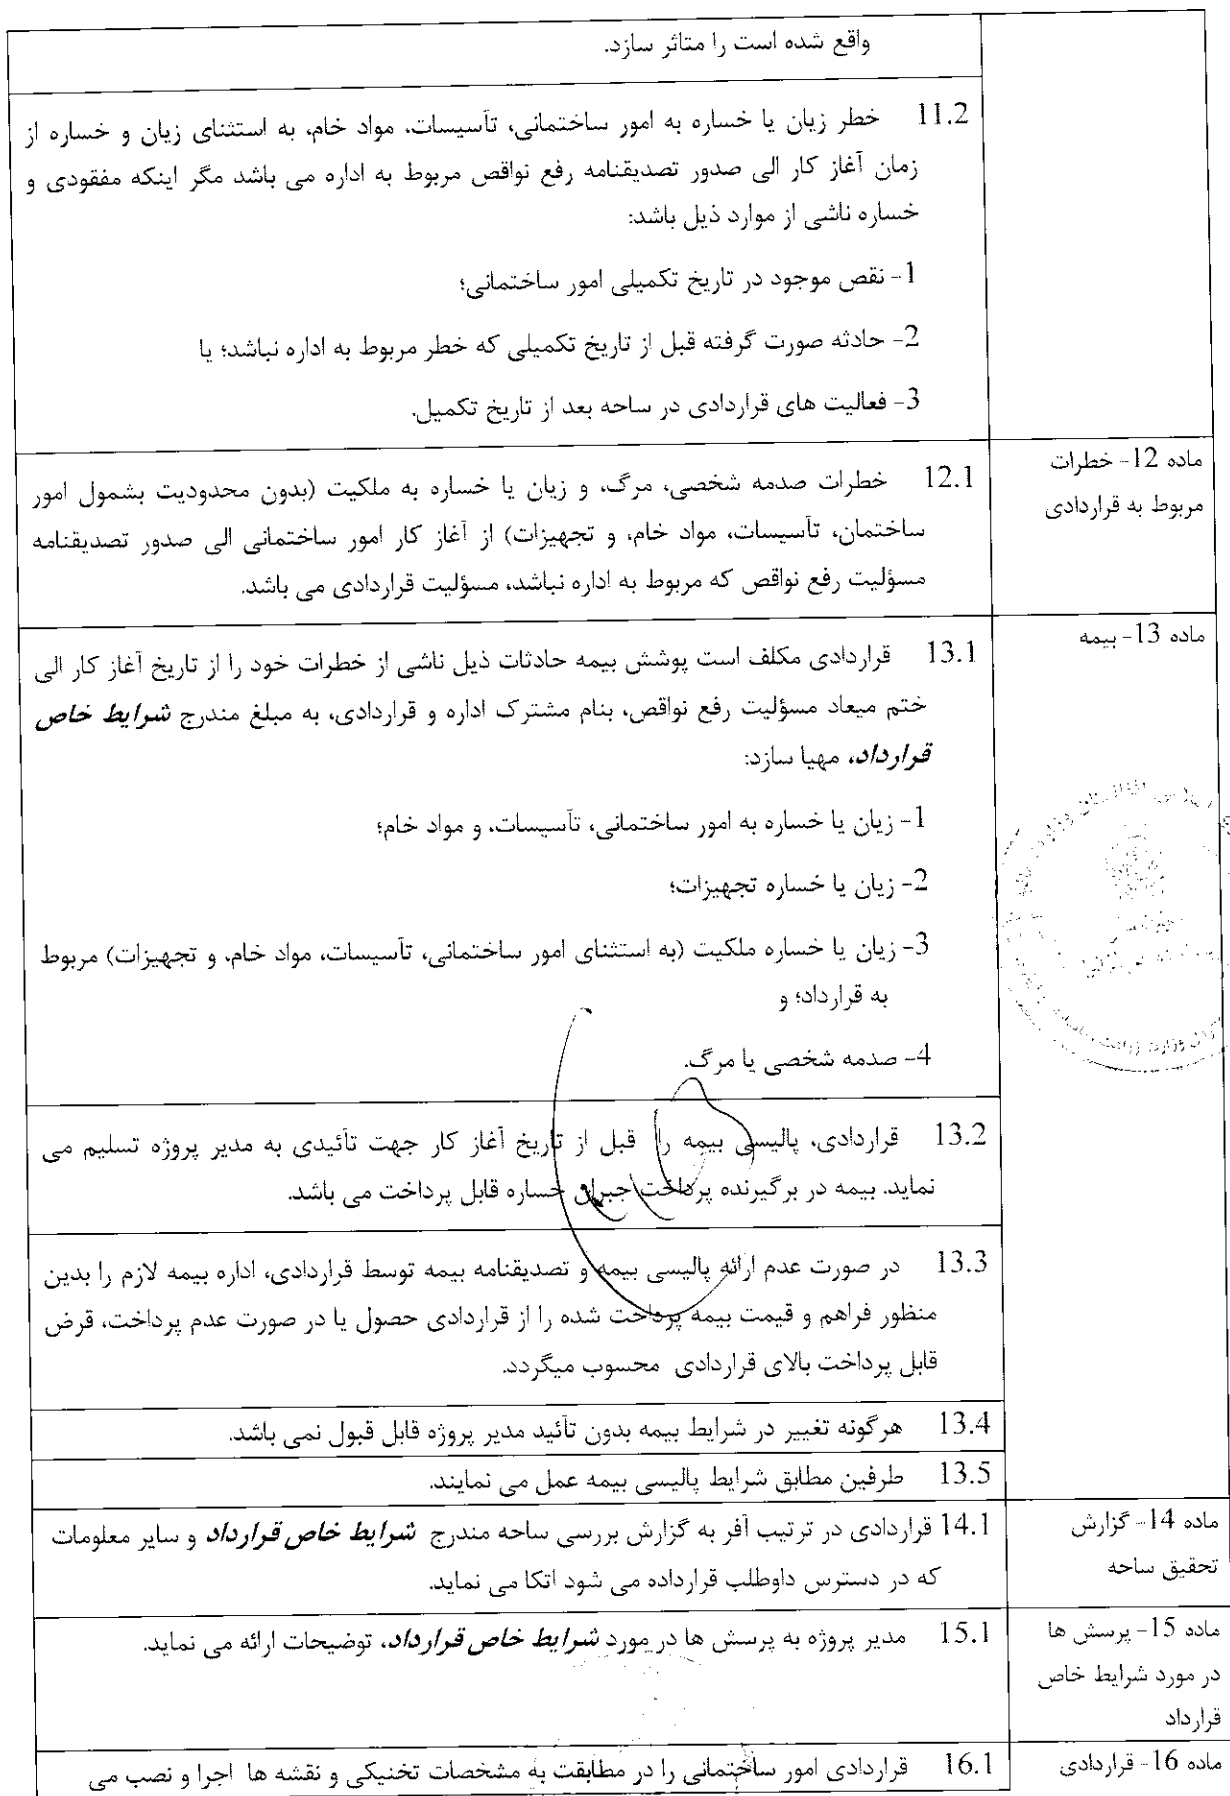 واقع شده است را متاثر سازد.
11.2 خطر زیان یا خساره به امور ساختمانی، تأسیسات، مواد خام، به استثنای زیان و خساره از
زمان آغاز کار الی صدور تصدیقنامه رفع نواقص مربوط به اداره می باشد مگر اینکه مفقودی و
خساره ناشی از موارد ذیل باشد:
1- نقص موجود در تاریخ تکمیلی امور ساختمانی؛
2- حادثه صورت گرفته قبل از تاریخ تکمیلی که خطر مربوط به اداره نباشد؛ یا
3- فعالیت های قراردادی در ساحه بعد از تاریخ تکمیل.
ماده 12- خطرات
مربوط به قراردادی
12.1 خطرات صدمه شخصی، مرگ، و زیان یا خساره به ملکیت (بدون محدودیت بشمول امور
ساختمان، تأسیسات، مواد خام، و تجهیزات) از آغاز کار امور ساختمانی الی صدور تصدیقنامه
مسؤلیت رفع نواقص که مربوط به اداره نباشد، مسؤلیت قراردادی می باشد.
ماده 13- بیمه
13.1 قراردادی مکلف است پوشش بیمه حادثات ذیل ناشی از خطرات خود را از تاریخ آغاز کار الی
ختم میعاد مسؤلیت رفع نواقص، بنام مشترک اداره و قراردادی، به مبلغ مندرج شرایط خاص
قرارداد، مهیا سازد:
1- زیان یا خساره به امور ساختمانی، تأسیسات، و مواد خام؛
2- زیان یا خساره تجهیزات؛
3- زیان یا خساره ملکیت (به استثنای امور ساختمانی، تأسیسات، مواد خام، و تجهیزات) مربوط
به قرارداد؛ و
4- صدمه شخصی یا مرگ.
13.2 قراردادی، پالیسی بیمه را قبل از تاریخ آغاز کار جهت تأئیدی به مدیر پروژه تسلیم می
نماید. بیمه در برگیرنده پرداخت جبران خساره قابل پرداخت می باشد.
13.3 در صورت عدم ارائه پالیسی بیمه و تصدیقنامه بیمه توسط قراردادی، اداره بیمه لازم را بدین
منظور فراهم و قیمت بیمه پرداخت شده را از قراردادی حصول یا در صورت عدم پرداخت، قرض
قابل پرداخت بالای قراردادی محسوب میگردد.
13.4 هرگونه تغییر در شرایط بیمه بدون تأئید مدیر پروژه قابل قبول نمی باشد.
13.5 طرفین مطابق شرایط پالیسی بیمه عمل می نمایند.
ماده 14- گزارش
تحقیق ساحه
14.1 قراردادی در ترتیب آفر به گزارش بررسی ساحه مندرج شرایط خاص قرارداد و سایر معلومات
که در دسترس داوطلب قرارداده می شود اتکا می نماید.
ماده 15- پرسش ها
در مورد شرایط خاص
قرارداد
15.1 مدیر پروژه به پرسش ها در مورد شرایط خاص قرارداد، توضیحات ارائه می نماید.
ماده 16- قراردادی
16.1 قراردادی امور ساختمانی را در مطابقت به مشخصات تخنیکی و نقشه ها اجرا و نصب می